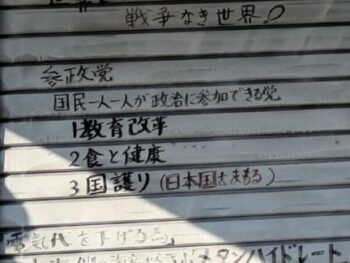 戦争なき世界。
参政党
国民一人一人が政治に参加できる党
1教育改革
2食と健康
3国護り(日本国をまもる)
電気代を下げる為」
メタンハイドレート